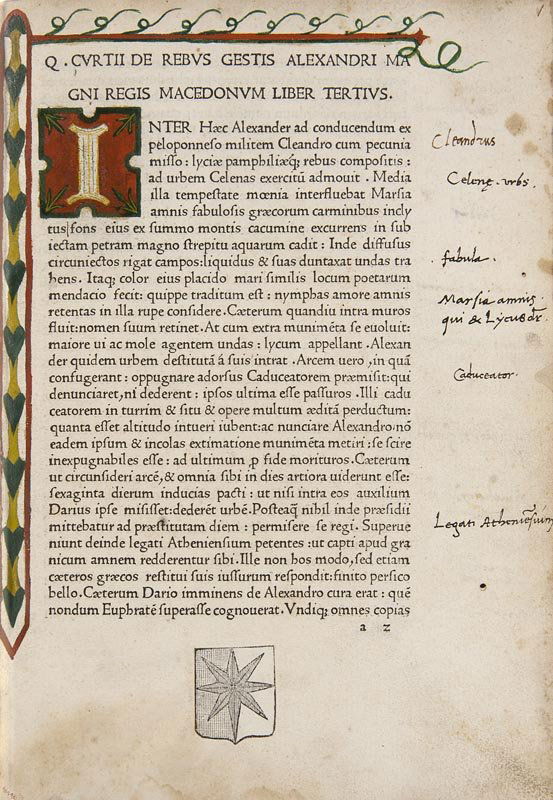 Q. CVRTII DE REBVS GESTIS ALEXANDRI MA
GNI REGIS MACEDONVM LIBER TERTIVS.
INTER Hæc Alexander ad conducendum ex
peloponneso militem Cleandro cum pecunia
misso: lyciæ pamphiliæq; rebus compositis:
ad urbem Celenas exercitū admouit. Media
illa tempestate mœnia interfluebat Marsia
amnis fabulosis græcorum carminibus incly
tus| fons eius ex summo montis cacumine excurrens in sub
iectam petram magno strepitu aquarum cadit: Inde diffusus
circuniectos rigat campos: liquidus & suas duntaxat undas tra
hens. Itaq; color eius placido mari similis locum poetarum
mendacio fecit: quippe traditum est: nymphas amore amnis
retentas in illa rupe considere. Cæterum quandiu intra muros
fluit: nomen suum retinet. At cum extra munimēta se euoluit:
maiore ui ac mole agentem undas: lycum appellant. Alexan
der quidem urbem destitutā á suis intrat. Arcem uero, in quā
confugerant: oppugnare adorsus Caduceatorem præmisit: qui
denunciaret, ni dederent: ipsos ultima esse passuros. Illi cadu
ceatorem in turrim & situ & opere multum æditā perductum:
quanta esset altitudo intueri iubent: ac nunciare Alexandro, nō
eadem ipsum & incolas extimatione munimēta metiri: se scire
inexpugnabiles esse: ad ultimum ꝓ fide morituros. Cæterum
ut circunsideri arcē, & omnia sibi in dies artiora uiderunt esse:
sexaginta dierum inducias pacti: ut nisi intra eos auxilium
Darius ipse misisset: dederēt urbē. Posteaq̄ nihil inde præsidii
mittebatur ad præstitutam diem: permisere se regi. Superue
niunt deinde legati Atheniensium petentes: ut capti apud gra
nicum amnem redderentur sibi. Ille non hos modo, sed etiam
cæteros græcos restitui suis iussurum respondit: finito persico
bello. Cæterum Dario imminens de Alexandro cura erat: quē
nondum Euphratē superasse cognouerat. Vndiq; omnes copias
a z
Cleandrus
Celenę. urbs.
fabula.
Marsia amnis
qui & Lycus
Caduceator.
Legati Atheniēsium